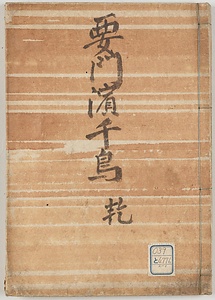 要門濵千鳥
乾